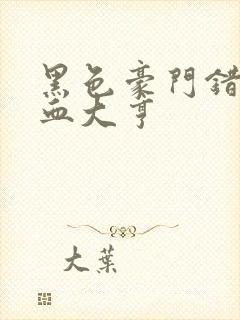 黑色豪門錯
血大亨
大葉